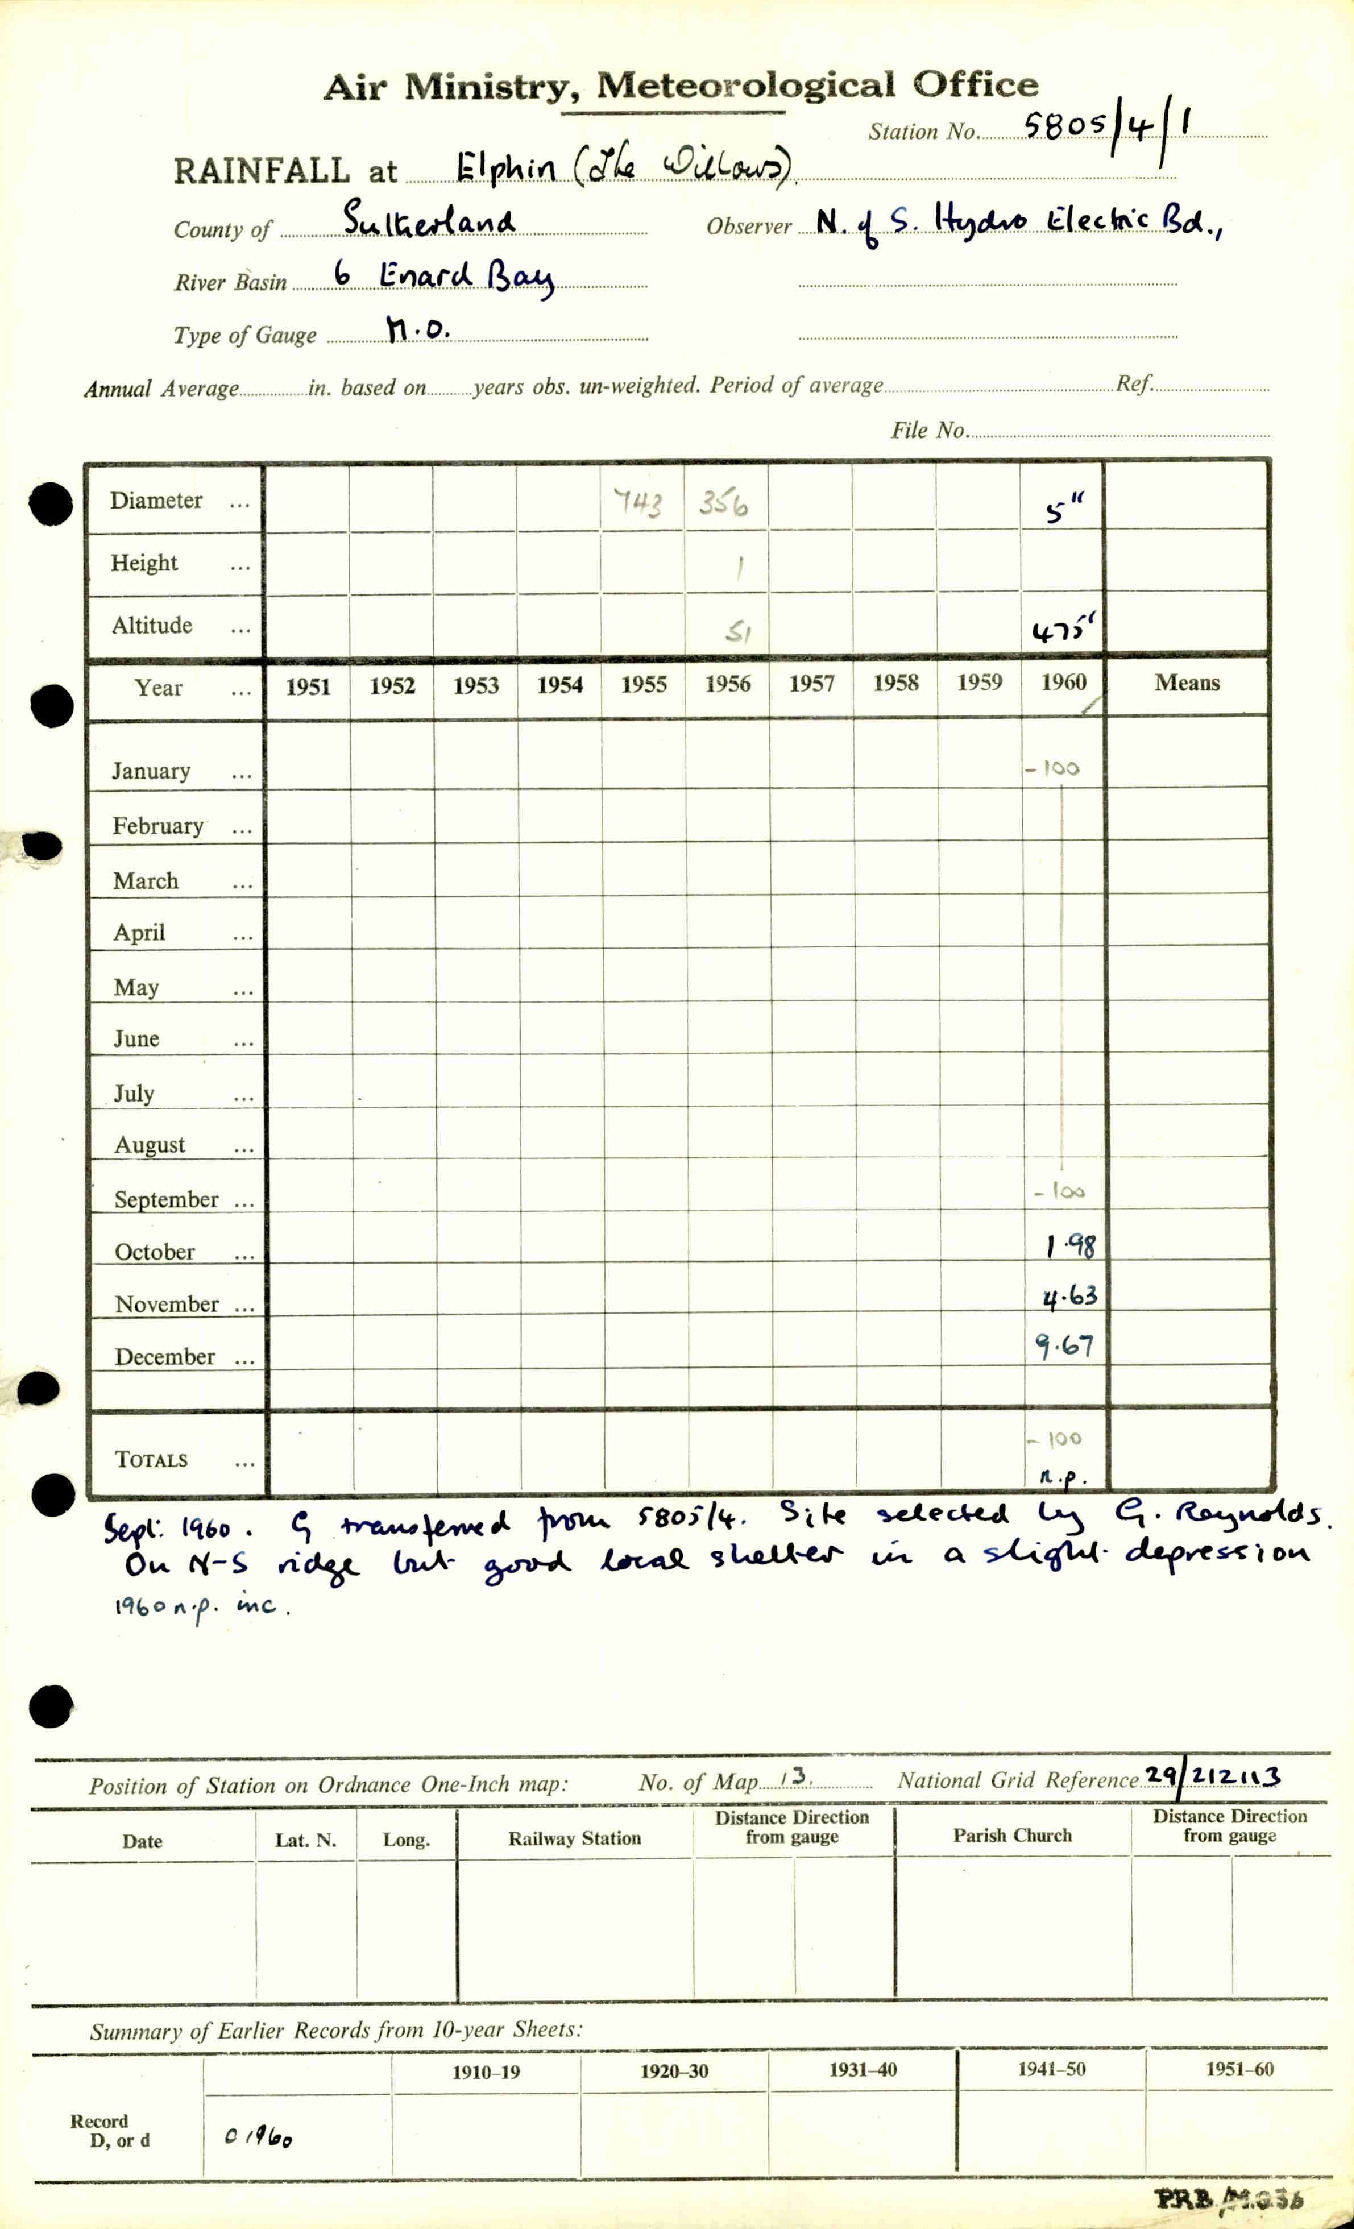 Air Ministry, Meteorological Office
Station No. 5805/4/1
RAINFALL at Elphin (The Willows).
County of Sutherland Observer N. of S. Hydro Electric Bd.,
River Basin 6 Enard Bay
Type of Gauge M.O.
Annual Average in. based on years obs. un-weighted. Period of average Ref.
File No.
Diameter ... 743 356 5"
Height ... 1
Altitude ... 51 475'
Year ... 1951 1952 1953 1954 1955 1956 1957 1958 1959 1960 Means
January ... -100
February ...
March ...
April ...
May ...
June ...
July ...
August ...
September ... -100
October ... 1.98
November ... 4.63
December ... 9.67
TOTALS ... -100
n.p.
Sept. 1960. G transferred from 5805/4. Site selected by G. Raynolds.
On N-S ridge but good local shelter in a slight depression
1960 n.p. inc.
Position of Station on Ordnance One-Inch map: No. of Map 13. National Grid Reference 29/212113
Date Lat. N. Long. Railway Station Distance Direction from gauge Parish Church Distance Direction from gauge
Summary of Earlier Records from 10-year Sheets:
1910-19 1920-30 1931-40 1941-50 1951-60
Record
D, or d 0 1960
PRB/M.036